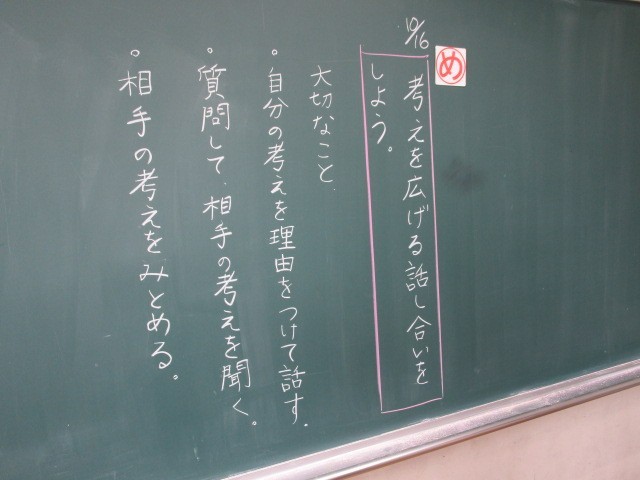 10/16
め
考えを広げる話し合いを
しよう。
大切なこと
。自分の考えを理由をつけて話す.
。質問して、相手の考えを聞く。
。相手の考えをみとめる。